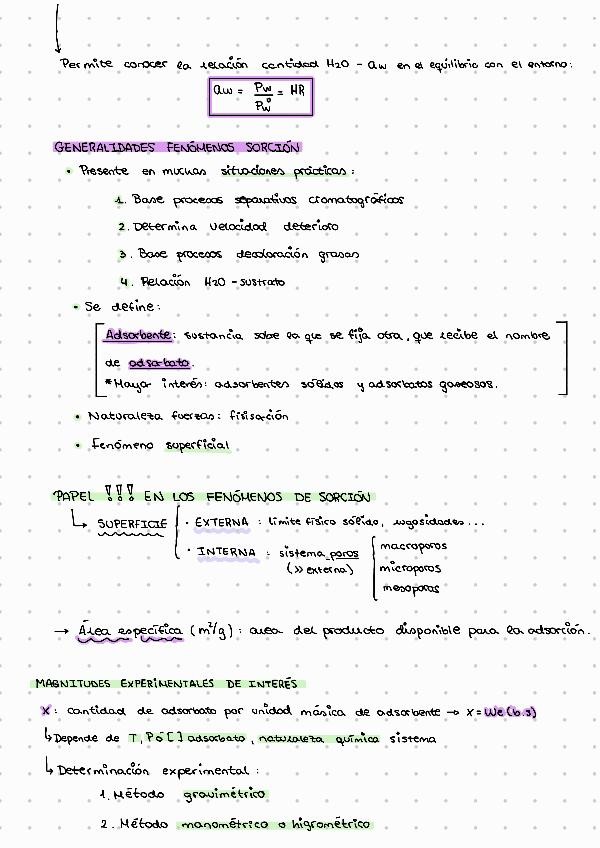 Permite conocer la relación cantidad H2O - aw en el equilibrio con el entorno:
aw = Pw / P°w = HR
GENERALIDADES FENÓMENOS SORCIÓN
• Presente en muchas situaciones prácticas:
1. Base procesos separativos cromatográficos
2. Determina velocidad deterioro
3. Base procesos decoloración grasas
4. Relación H2O - sustrato
• Se define:
Adsorbente: sustancia sobe la que se fija otra, que recibe el nombre
de adsorbato.
*Mayor interés: adsorbentes sólidos y adsorbatos gaseosos.
• Naturaleza fuerzas: fisisorción
• Fenómeno superficial
PAPEL !!! EN LOS FENÓMENOS DE SORCIÓN
↳ SUPERFICIE
• EXTERNA : límite físico sólido, rugosidades...
• INTERNA : sistema poros
(>> externa)
macroporos
microporos
mesoporos
→ Área específica (m²/g) : area del producto disponible para la adsorción.
MAGNITUDES EXPERIMENTALES DE INTERÉS
X: cantidad de adsorbato por unidad másica de adsorbente → X = We (b.s)
↳ Depende de T, P ó [ ] adsorbato, naturaleza química sistema
↳ Determinación experimental :
1. Método gravimétrico
2. Método manométrico o higrométrico